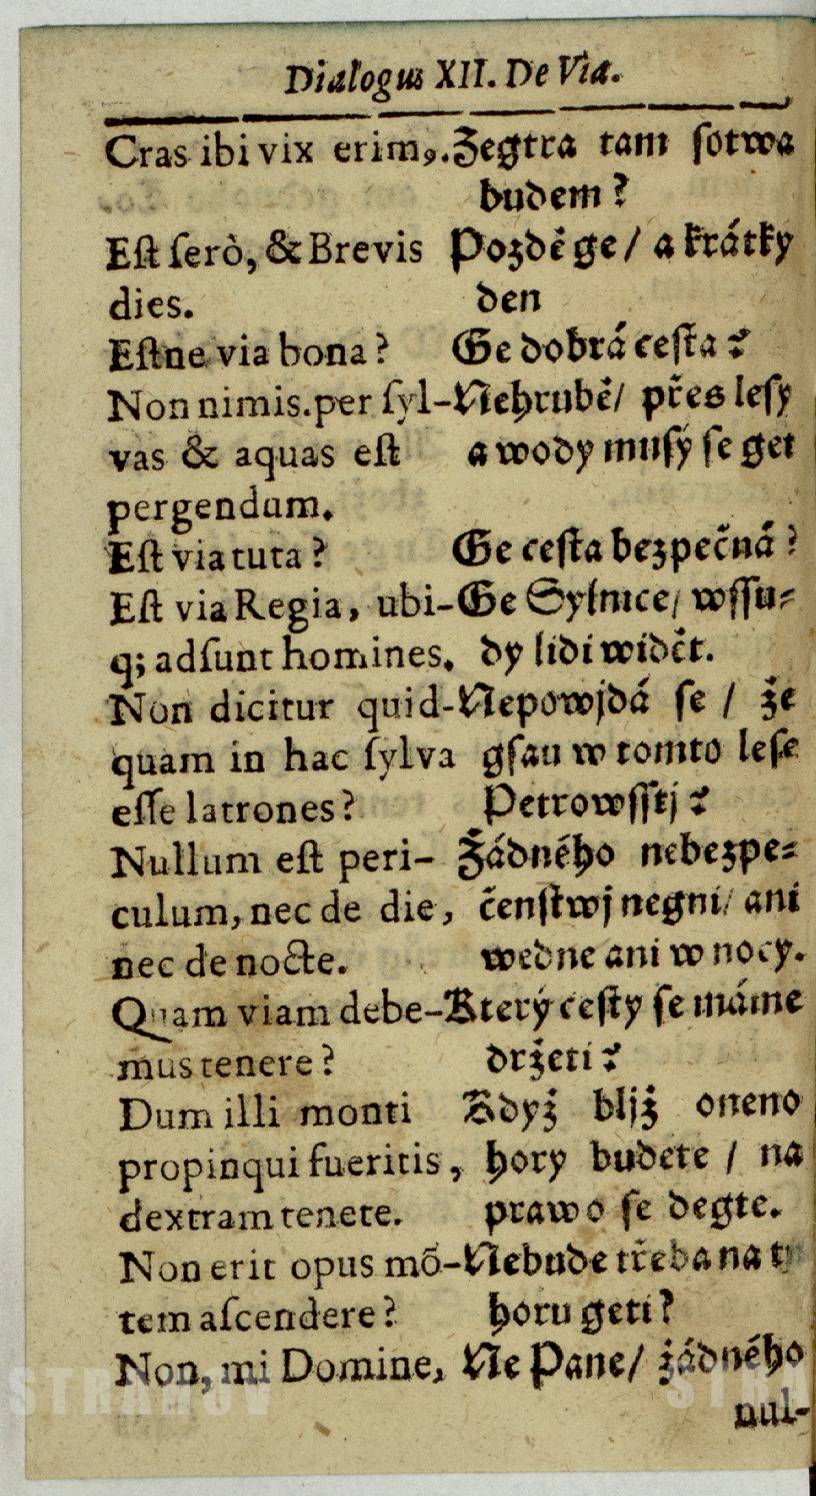 Dialogus XII. De Via.
Cras ibi vix erim,. Zegtra tam ſotwa
budem?
Eſt ſerò, & Brevis Pozdě ge / a krátky
dies. den
Eſtne via bona? Ge dobrá ceſta?
Non nimis. per ſyl- Nehrubě / přes leſy
vas & aquas eſt a wody muſý ſe get
pergendum.
Eſt via tuta? Ge ceſta bezpečná?
Eſt via Regia, ubi- Ge Sylnice / wſſu-
q; adſunt homines. dy lidi widět.
Non dicitur quid- Nepowjdá ſe / že
quam in hac ſylva gſau w tomto leſe
eſſe latrones? Petrowſſtj?
Nullum eſt peri- Žádného nebezpe-
culum, nec de die, čenſtwj negni / ani
nec de nocte. wedne ani w nocy.
Quam viam debe- Který ceſty ſe máme
mus tenere? držeti?
Dum illi monti Když bljž oneno
propinqui fueritis, hory budete / na
dextram tenete. prawo ſe degte.
Non erit opus mõ- Nebude třeba na
tem aſcendere? horu geti?
Non, mi Domine, Ne Pane / žádného
nul-
STRAHOV